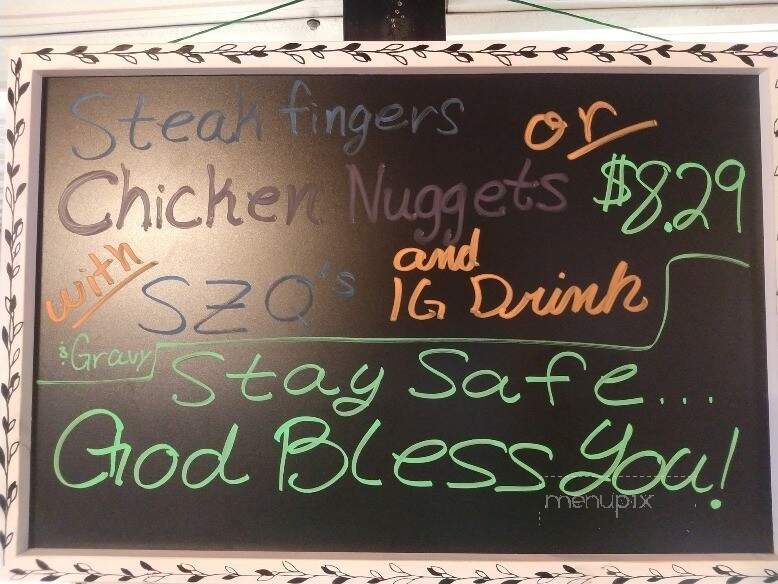 Steak fingers or
Chicken Nuggets $8.29
with SZQ's and
1G Drink
& Gravy
Stay Safe...
God Bless You!
menupix